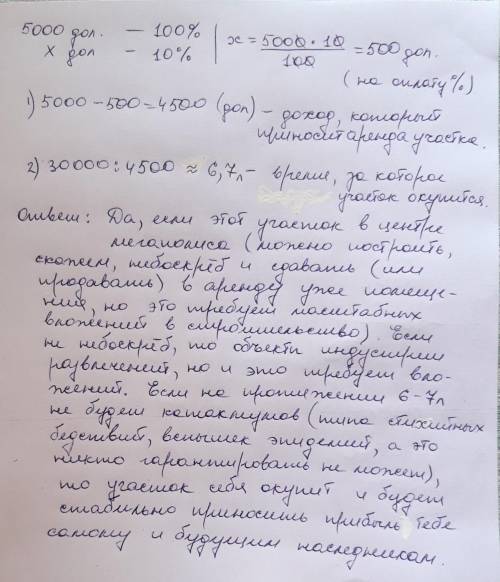 5000 дол. — 100%
x дол — 10%
x = 5000 · 10 / 100 = 500 дол.
(на оплату %)
1) 5000 − 500 = 4500 (дол) – доход, который
приносит аренда участка.
2) 30000 : 4500 ≈ 6,7л – время, за которое
участок окупится.
Ответ: Да, если этот участок в центре
мегаполиса (можно построить,
скажем, небоскрёб и сдавать (или
продавать) в аренду уже помеще-
ния, но это требует масштабных
вложений в строительство). Если
не небоскрёб, то объекты индустрии
развлечений, но и это требует вло-
жений. Если на протяжении 6-7л
не будет катаклизмов (типа стихийных
бедствий, вспышек эпидемий, а это
никто гарантировать не может),
то участок себя окупит и будет
стабильно приносить прибыль тебе
самому и будущим наследникам.